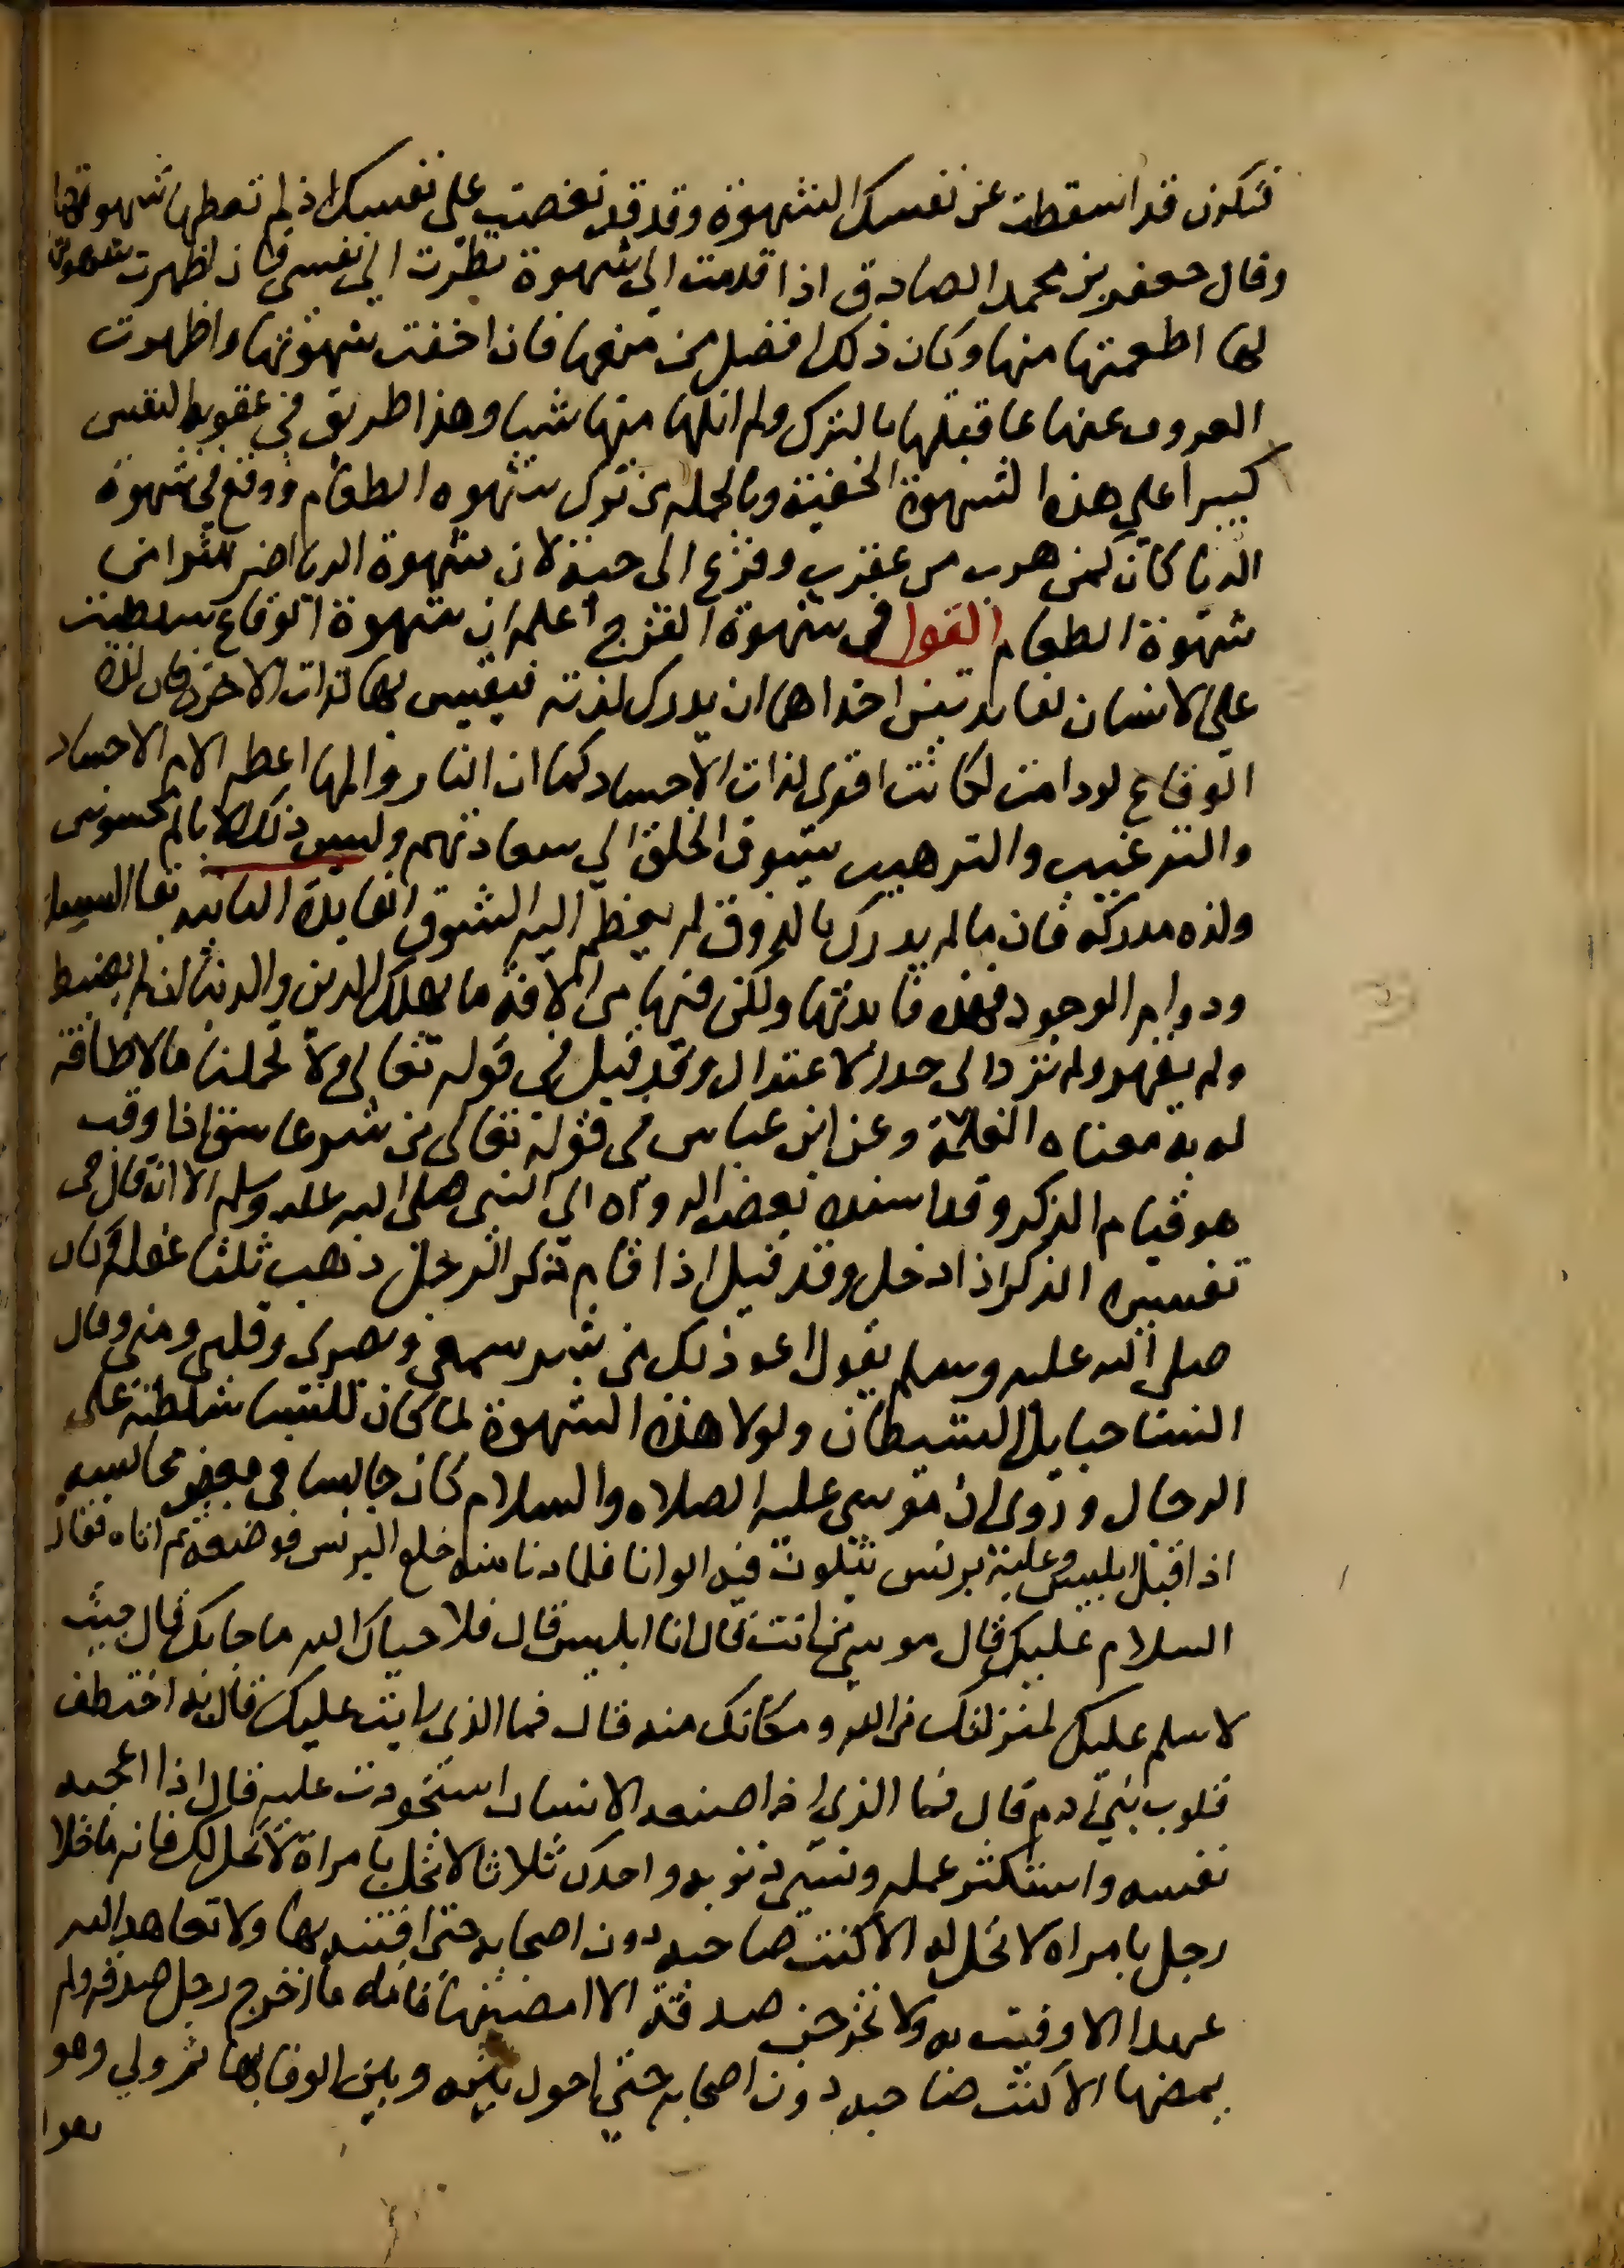 فتكون قد اسقطت عن نفسك الشهوة وقد قد نغصت على نفسك اذ لم تعطها شهوتها
وقال جعفر بن محمد الصادق اذا قدمت الي شهوة نظرت الي نفسي فان اظهرت شهوتها
لها اطعمتها منها وكان ذلك افضل من منعها فان اخفت شهوتها واظهرت
العزوف عنها عاقبتها بالترك ولم انلها منها شيا وهذا طريق في عقوبة النفس
كبيرا علي هذه الشهوة الخفية وبالجملة من ترك شهوه الطعام ووقع في شهوة
الريا كان كمن هرب من عقرب وفزع الى حية لان شهوة الريا اضر كثيرا من
شهوة الطعام القول في شهوة الفرج اعلم ان شهوة الوقاع سلطت
على الانسان لفايدتين احداهما ان يدرك لذته فيقيس بها لذات الاخرة فان لذة
الوقاع لو دامت لكانت اقوى لذات الاجساد كما ان النار والمها اعظم الام الاجساد
والترغيب والترهيب يسوق الخلق الي سعادتهم وليس ذلك الا بالم محسوس
ولذه مدركة فان ما لم يدرك بالذوق لم يعظم اليه الشوق الفايدة الثانيه بقا النسل
ودوام الوجود فهذه فايدتها ولكن فيها من الافة ما يهلك الدين والدنيا ان لم يضبط
ولم يقهر ولم ترد الى حد الاعتدال وقد قيل في قوله تعالى ولا تحملنا ما لا طاقة
لنا به معناه الغلمة وعن ابن عباس في قوله تعالى من شر غاسق اذا وقب
هو قيام الذكر وقد اسنده بعض الرواة الي النبي صلى الله عليه وسلم الا انه قال في
تفسيره الذكر اذا دخل وقد قيل اذا قام ذكر الرجل ذهب ثلثا عقله وكان
صلى الله عليه وسلم يقول اعوذ بك من شر سمعي وبصري وقلبي ومني وقال
النسا حبايل الشيطان ولولا هذه الشهوة لما كان للنسا سلطنة على
الرجال وروى ان موسى عليه الصلاه والسلام كان جالسا في بعض مجالسه
اذ اقبل ابليس وعليه برنس يتلون فيه الوانا فلما دنا منه خلع البرنس فوضعه ثم اتاه فقال
السلام عليك قال موسى من انت قال انا ابليس قال فلا حياك الله ما جا بك قال جيت
لاسلم عليك لمنزلتك من الله ومكانك منه قال فما الذي رايت عليك قال به اختطف
قلوب بني ادم قال فما الذي اذا صنعه الانسان استحوذت عليه قال اذا اعجبته
نفسه واستكثر عمله ونسي ذنوبه واحذرك ثلاثا لا تخل بامراة لا تحل لك فانه ما خلا
رجل بامراه لا تحل له الا كنت صاحبه دون اصحابه حتى افتنه بها ولا تعاهد الله
عهدا الا وفيت به ولا تخرجن صدقة الا امضيتها فانه ما اخرج رجل صدقه ولم
يمضها الا كنت صاحبه دون اصحابه حتي احول بينه وبين الوفا بها ثم ولي وهو